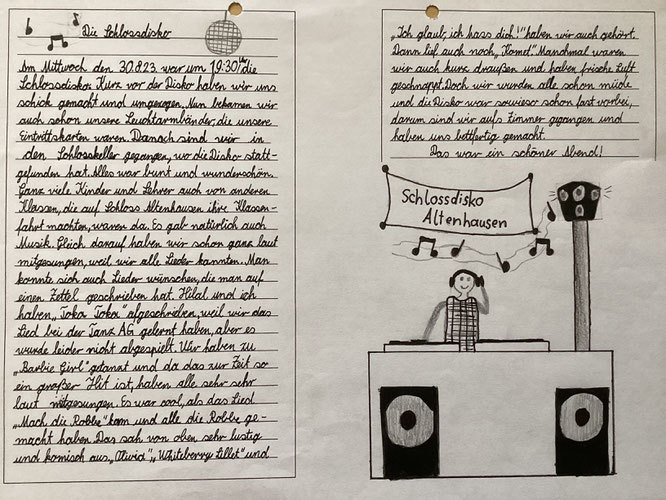 Die Schlossdisko
Am Mittwoch den 30.8.23 war um 19:30 Uhr die
Schlossdisko. Kurz vor der Disko haben wir uns
schick gemacht und umgezogen. Nun bekamen wir
auch schon unsere Leuchtarmbänder, die unsere
Eintrittskarten waren. Danach sind wir in
den Schlosskeller gegangen, wo die Disko statt-
gefunden hat. Alles war bunt und wunderschön.
Ganz viele Kinder und Lehrer auch von anderen
Klassen, die auf Schloss Altenhausen ihre Klassen-
fahrt machten, waren da. Es gab natürlich auch
Musik. Gleich darauf haben wir schon ganz laut
mitgesungen, weil wir alle Lieder kannten. Man
konnte sich auch Lieder wünschen, die man auf
einen Zettel geschrieben hat. Hilal und ich
haben „Toka Toka" afgeschrieben, weil wir das
Lied bei der Tanz AG gelernt haben, aber es
wurde leider nicht abgespielt. Wir haben zu
„Barbie Girl" getanzt und da das zur Zeit so
ein großer Hit ist, haben alle sehr sehr
laut mitgesungen. Es war cool, als das Lied
„Mach die Robbe" kam und alle die Robbe ge-
macht haben. Das sah von oben sehr lustig
und komisch aus. „Olivia", „Whiteberry Lillet" und
„Ich glaub, ich hass dich!" haben wir auch gehört.
Dann lief auch noch „Komet". Manchmal waren
wir auch kurz draußen und haben frische Luft
geschnappt. Doch wir wurden alle schon müde
und die Disko war sowieso schon fast vorbei,
darum sind wir aufs Zimmer gegangen und
haben uns bettfertig gemacht.
Das war ein schöner Abend!
Schlossdisko
Altenhausen